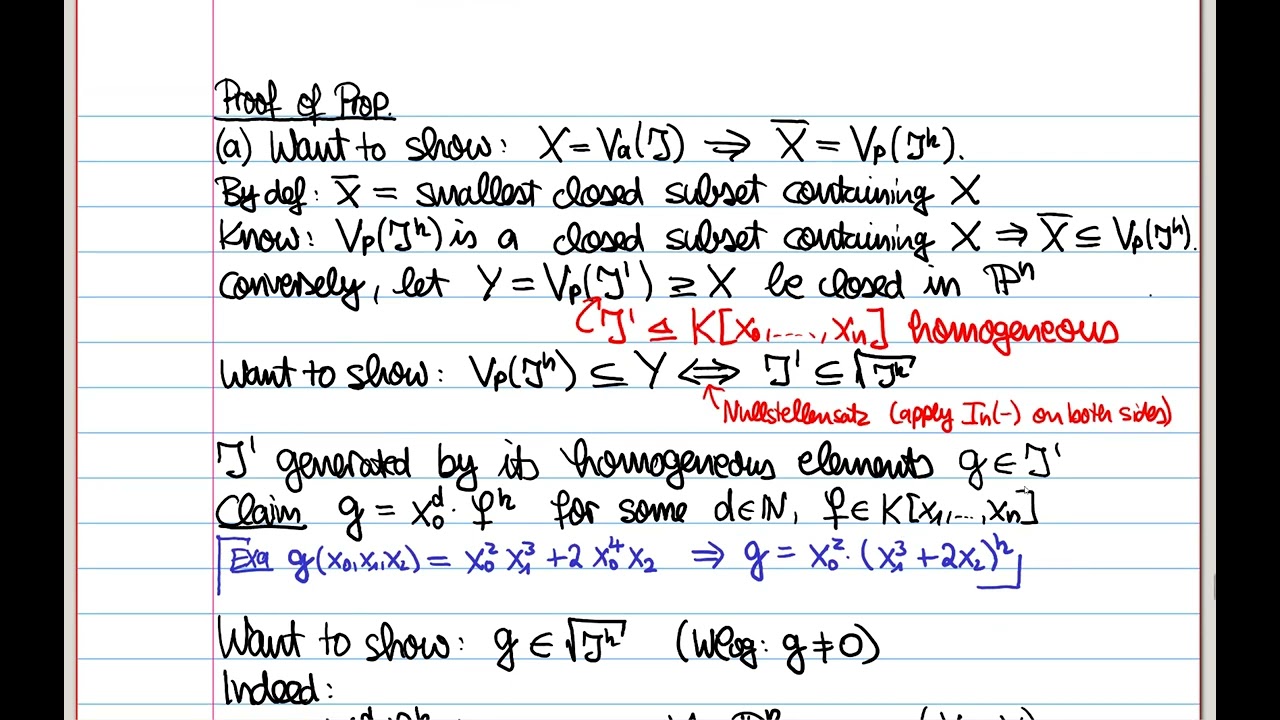 Proof of Prop.
(a) Want to show: X = Va(J) ⇒ X̅ = Vp(Jʰ).
By def: X̅ = smallest closed subset containing X
Know: Vp(Jʰ) is a closed subset containing X ⇒ X̅ ⊆ Vp(Jʰ).
Conversely, let Y = Vp(J') ⊇ X be closed in ℙⁿ
J' ⊴ K[x₀,...., xₙ] homogeneous
Want to show: Vp(Jʰ) ⊆ Y ⟺ J' ⊆ √Jʰ
Nullstellensatz (apply In(-) on both sides)
J' generated by its homogeneous elements g ∈ J'
Claim g = x₀ᵈ · fʰ for some d∈ℕ, f ∈ K[x₁,..., xₙ]
Exa g(x₀,x₁,x₂) = x₀² x₁³ + 2 x₀⁴ x₂ ⇒ g = x₀² · (x₁³ + 2x₂)ʰ
Want to show: g ∈ √Jʰ (Wlog: g ≠ 0)
Indeed: